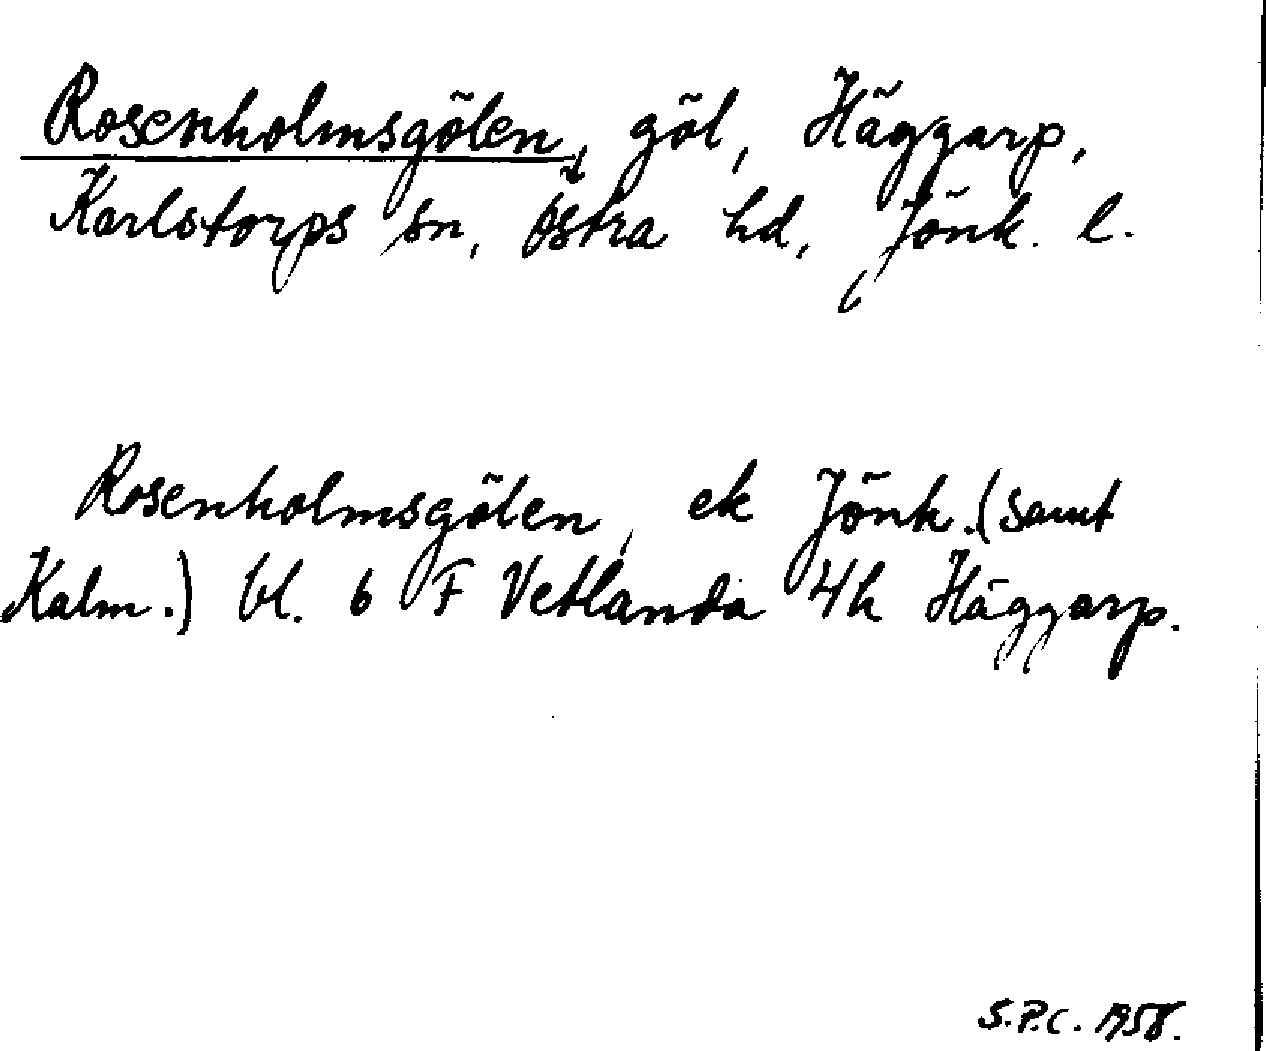 Rosenholmsgölen, göl, Häggarp,
Karlstorps sn, Östra hd, Jönk. l.
Rosenholmsgölen, ek Jönk. (samt
Kalm.) bl. 6 F Vetlanda 4h Häggarp.
S.P.C. 1958.